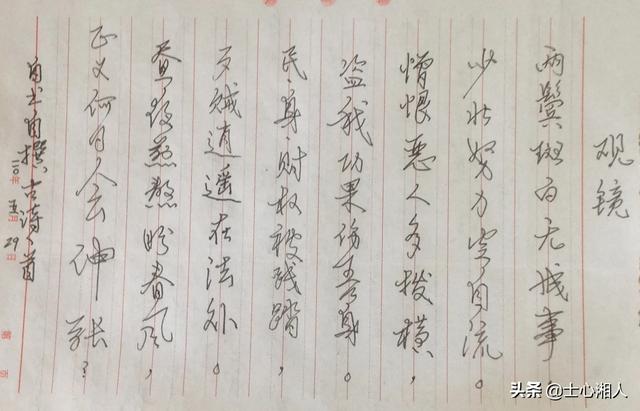 观镜
两鬓斑白无成事
少壮努力空自流。
憎恨恶人多拨横，
盗我功果伤吾身。
民身财权被践踏，
歹贼逍遥在法外。
昼夜煎熬盼春风，
正义何日会伸张？
自书自撰古诗一首
年五月29日
第 页
头条 @士心湘人